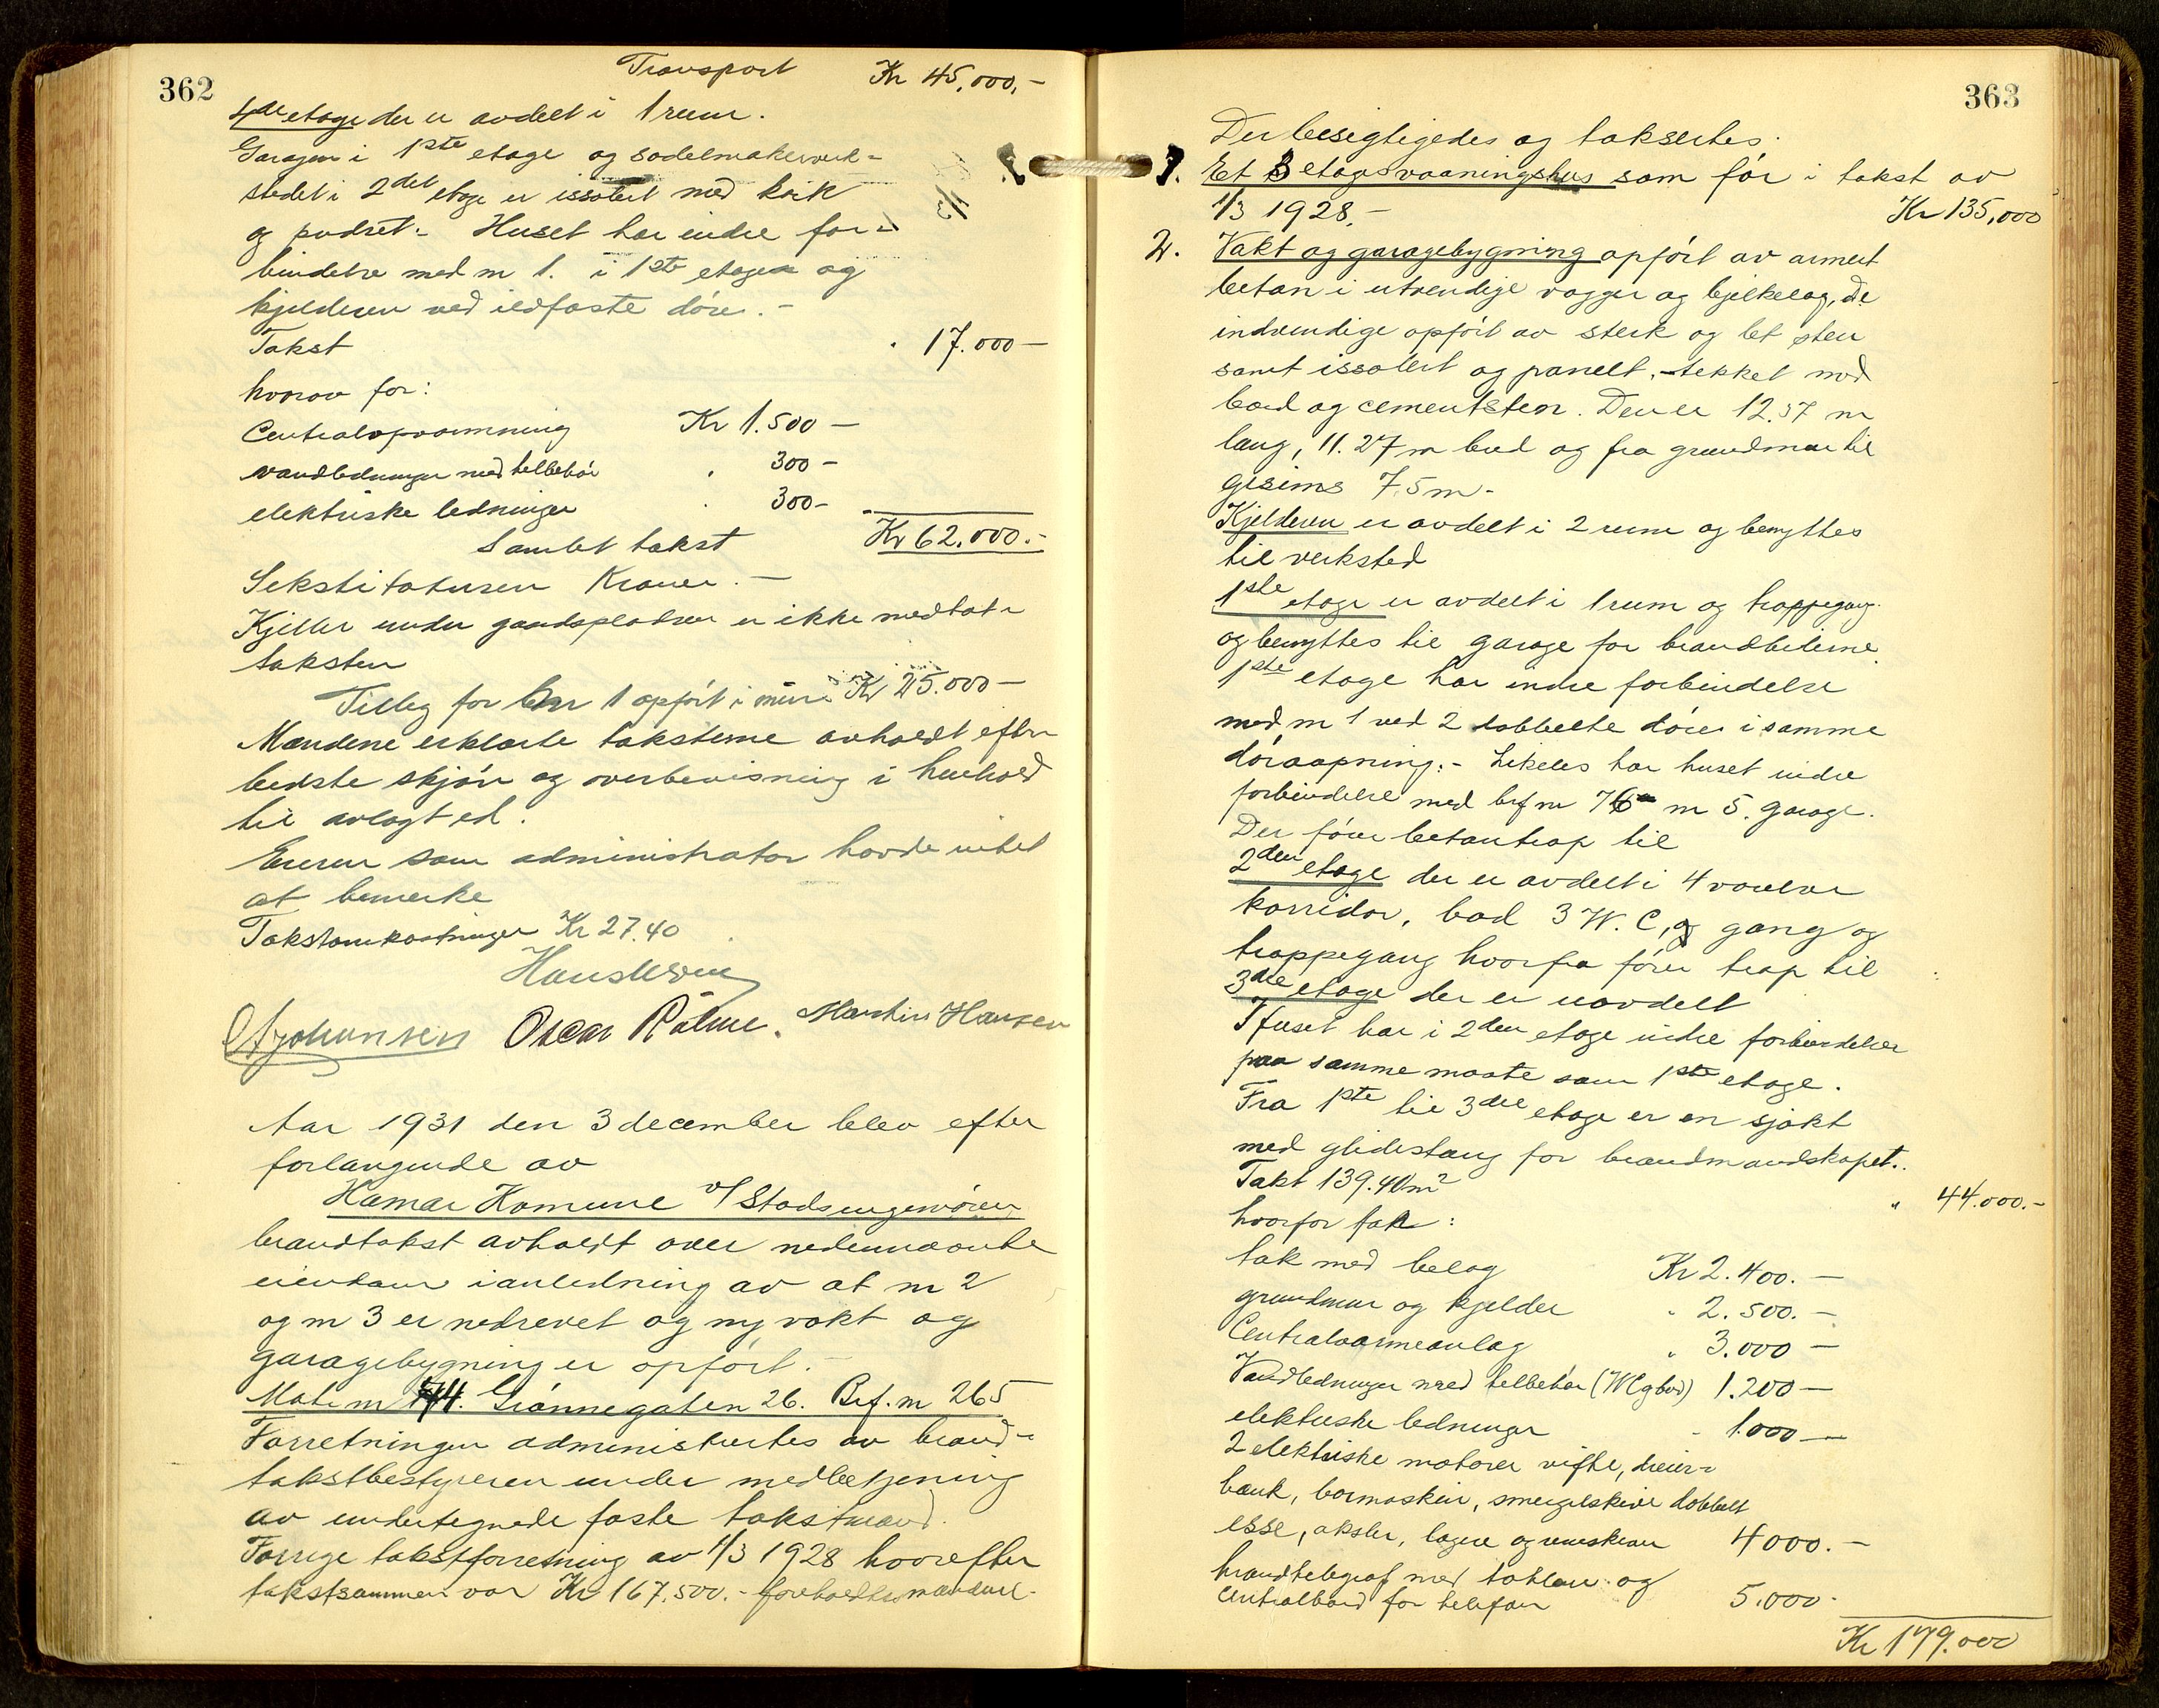 362
Transport Kr 45,000,-
4de etage der er avdelt i 1 rum.
Garagen i 1ste etage og sadelmakerverk-
stedet i 2det etage er issolert med kork
og pudset. Huset har indre for-
bindelse med nr 1. i 1ste etage og
kjelderen ved ildfaste døre.-
Takst " 17.000-
hvorav for:
Centralopvarmning Kr 1.500-
vandledninger med tilbehør " 300-
elektriske ledninger " 300-
Samlet takst Kr 62.000.-
Sekstitotusen Kroner.-
Kjeller under gaardspladsen er ikke medtat i
taksten
Tillæg for nr 1 opført i mur Kr 25.000-
Mændene erklærte taksterne avholdt efter
bedste skjøn og overbevisning i henhold
til avlagt ed.
Eieren som administrator havde intet
at bemerke
Takstomkostninger Kr 27.40
Oscar Martin Hansen
Aar 1931 den 3 december blev efter
forlangende av
Hamar Komune v/ Stadsingeniøren
brandtakst avholdt over nedennævnte
eiendom i anledning av at nr 2
og nr 3 er nedrevet og ny vakt og
garagebygning er opført.-
Matr nr 44. Grønnegaten 26. Brf. nr 265
Forretningen administrertes av brand-
takstbestyreren under medbetjening
av undertegnede faste takstmænd.
Forrige takstforretning av 1/3 1928 hvorefter
takstsummen var Kr 167.500.- foreholdtes mændene.
363
Der besigtigedes og taksertes:
1. Et 3 etages vaaningshus som før i takst av
1/3 1928.- Kr 135,000
2. Vakt og garagebygning opført av armert
betong i utvendige vægger og bjelkelag, de
indvendige opført av sterk og let sten
samt issolert og panelt, tekket med
bord og cementsten. Den er 12.57 m
lang, 11.27 m bred og fra grundmur til
gesims 7.5 m-
Kjelderen er avdelt i 2 rum og benyttes
til verksted
1ste etage er avdelt i 1 rum og trappegang
og benyttes til garage for brandbilerne.
1ste etage har indre forbindelse
med nr 1 ved 2 dobbelte døre i samme
døraapning.- Likeles har huset indre
forbindelse med brf nr 76 nr 5. garage.
Der fører betontrap til
2den etage der er avdelt i 4 værelser
korridor, bad 3 W.C, og gang og
trappegang hvorfra fører trap til
3die etage der er uavdelt
Huset har i 2den etage indre forbindelser
paa samme maate som 1ste etage.
Fra 1ste til 3die etage er en sjakt
med glidestang for brandmandskapet.
Takt 139.40 m2 " 44.000.-
hvorfor tak:
tak med belag Kr 2.400.-
grundmur og kjelder " 2.500.-
Centralvarmeanlag " 3.000-
Vandledninger med tilbehør (WC og bad) 1.200-
elektriske ledninger " 1.000-
2 elektriske motorer vifte, dreier-
bænk, bormaskin, smergelskive dobbelt
esse, aksler, lagere og remskiver 4000.-
brandtelegraf med tablau og
centralbord for telefon 5.000-
Kr 179.000